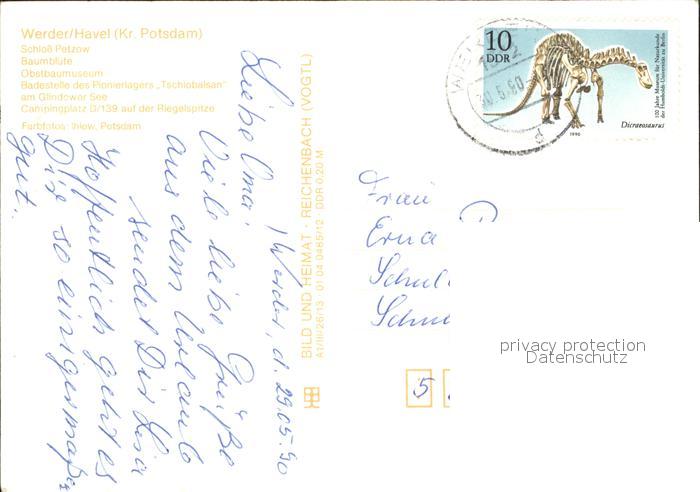 Werder/Havel (Kr. Potsdam)
Schloß Petzow
Baumblüte
Obstbaumuseum
Badestelle des Pionierlagers „Tschiobalsan"
am Glindower See
Campingplatz D/139 auf der Riegelspitze
Farbfotos: Ihlow, Potsdam
Werder, d. 29.05.90
Liebe Oma!
Viele liebe Grüße
aus dem Urlaub
sendet Dir
Hoffentlich geht es
Dir so einigermaßen
gut.
BILD UND HEIMAT · REICHENBACH (VOGTL)
A1/III/26/13 01 04 0465/12 · DDR 0,20 M
10
DDR
100 Jahre Museum für Naturkunde
der Humboldt-Universität zu Berlin
Dicraeosaurus
1990
30.5.90
Frau
Erna
5
privacy protection
Datenschutz